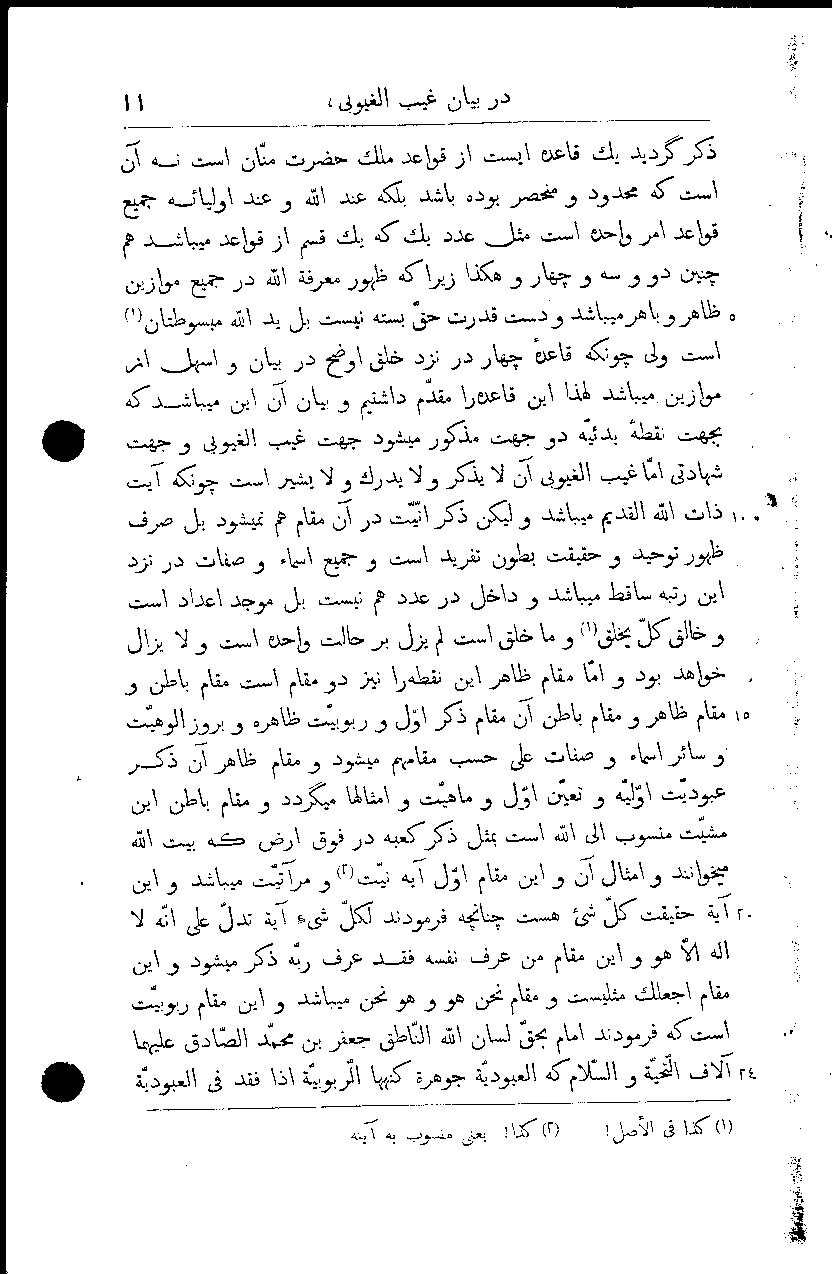 در بیان غیب الغیوبی، ۱۱
ذکر گردید یك قاعده ایست از قواعد ملك حضرت منّان نــه آن
است که محدود و منحصر بوده باشد بلکه عند الله و عند اولیائــه جمیع
قواعد امر واحده است مثل عدد یك که یك قسم از قواعد میباشــد هم
چنین دو و سه و چهار و هکذا زیرا که ظهور معرفة الله در جمیع موازین
۵ ظاهر و باهر میباشد و دست قدرت حقّ بسته نیست بل ید الله مبسوطتان(۱)
است ولی چونکه قاعدهٔ چهار در نزد خلق اوضح در بیان و اسهل از
موازین میباشد لهذا این قاعده‌را مقدّم داشتیم و بیان آن این میباشــد که
بجهت نقطهٔ بدئیّه دو جهت مذکور میشود جهت غیب الغیوبی و جهت
شهادتی امّا غیب الغیوبی آن لا یذکر و لا یدرك و لا یشیر است چونکه آیت
۱۰ ذات الله القدیم میباشد و لیکن ذکر انّیّت در آن مقام هم نمیشود بل صرف
ظهور توحید و حقیقت بطون تفرید است و جمیع اسماء و صفات در نزد
این رتبه ساقط میباشد و داخل در عدد هم نیست بل موجد اعداد است
و خالق کلّ یخلق(۱) و ما خلق است لم یزل بر حالت واحده است و لا یزال
خواهد بود و امّا مقام ظاهر این نقطه‌را نیز دو مقام است مقام باطن و
۱۵ مقام ظاهر و مقام باطن آن مقام ذکر اوّل و ربوبیّت ظاهره و بروز الوهیّت
و سائر اسماء و صفات علی حسب مقامهم میشود و مقام ظاهر آن ذکــر
عبودیّت اوّلیّه و تعیّن اوّل و ماهیّت و امثالها میگردد و مقام باطن این
مشیّت منسوب الی الله است بمثل ذکر کعبه در فوق ارض کــه بیت الله
میخوانند و امثال آن و این مقام اوّل آیه نیّت(۲) و مرآتیّت میباشد و این
۲۰ آیة حقیقت کلّ شئ هست چنانچه فرمودند لکلّ شیء آیة تدلّ علی انّه لا
اله الاّ هو و این مقام من عرف نفسه فقــد عرف ربّه ذکر میشود و این
مقام اجعلك مثلیست و مقام نحن هو و هو نحن میباشد و این مقام ربوبیّت
است که فرمودند امام بحقّ لسان الله النّاطق جعفر بن محمّد الصّادق علیهما
۲۴ آلاف التّحیّة و السّلام که العبودیّة جوهرة کنهها الّربوبیّة اذا فقد فی العبودیّة
(۱) کذا فی الأصل! (۲) کذا! یعنی منسوب به آینه